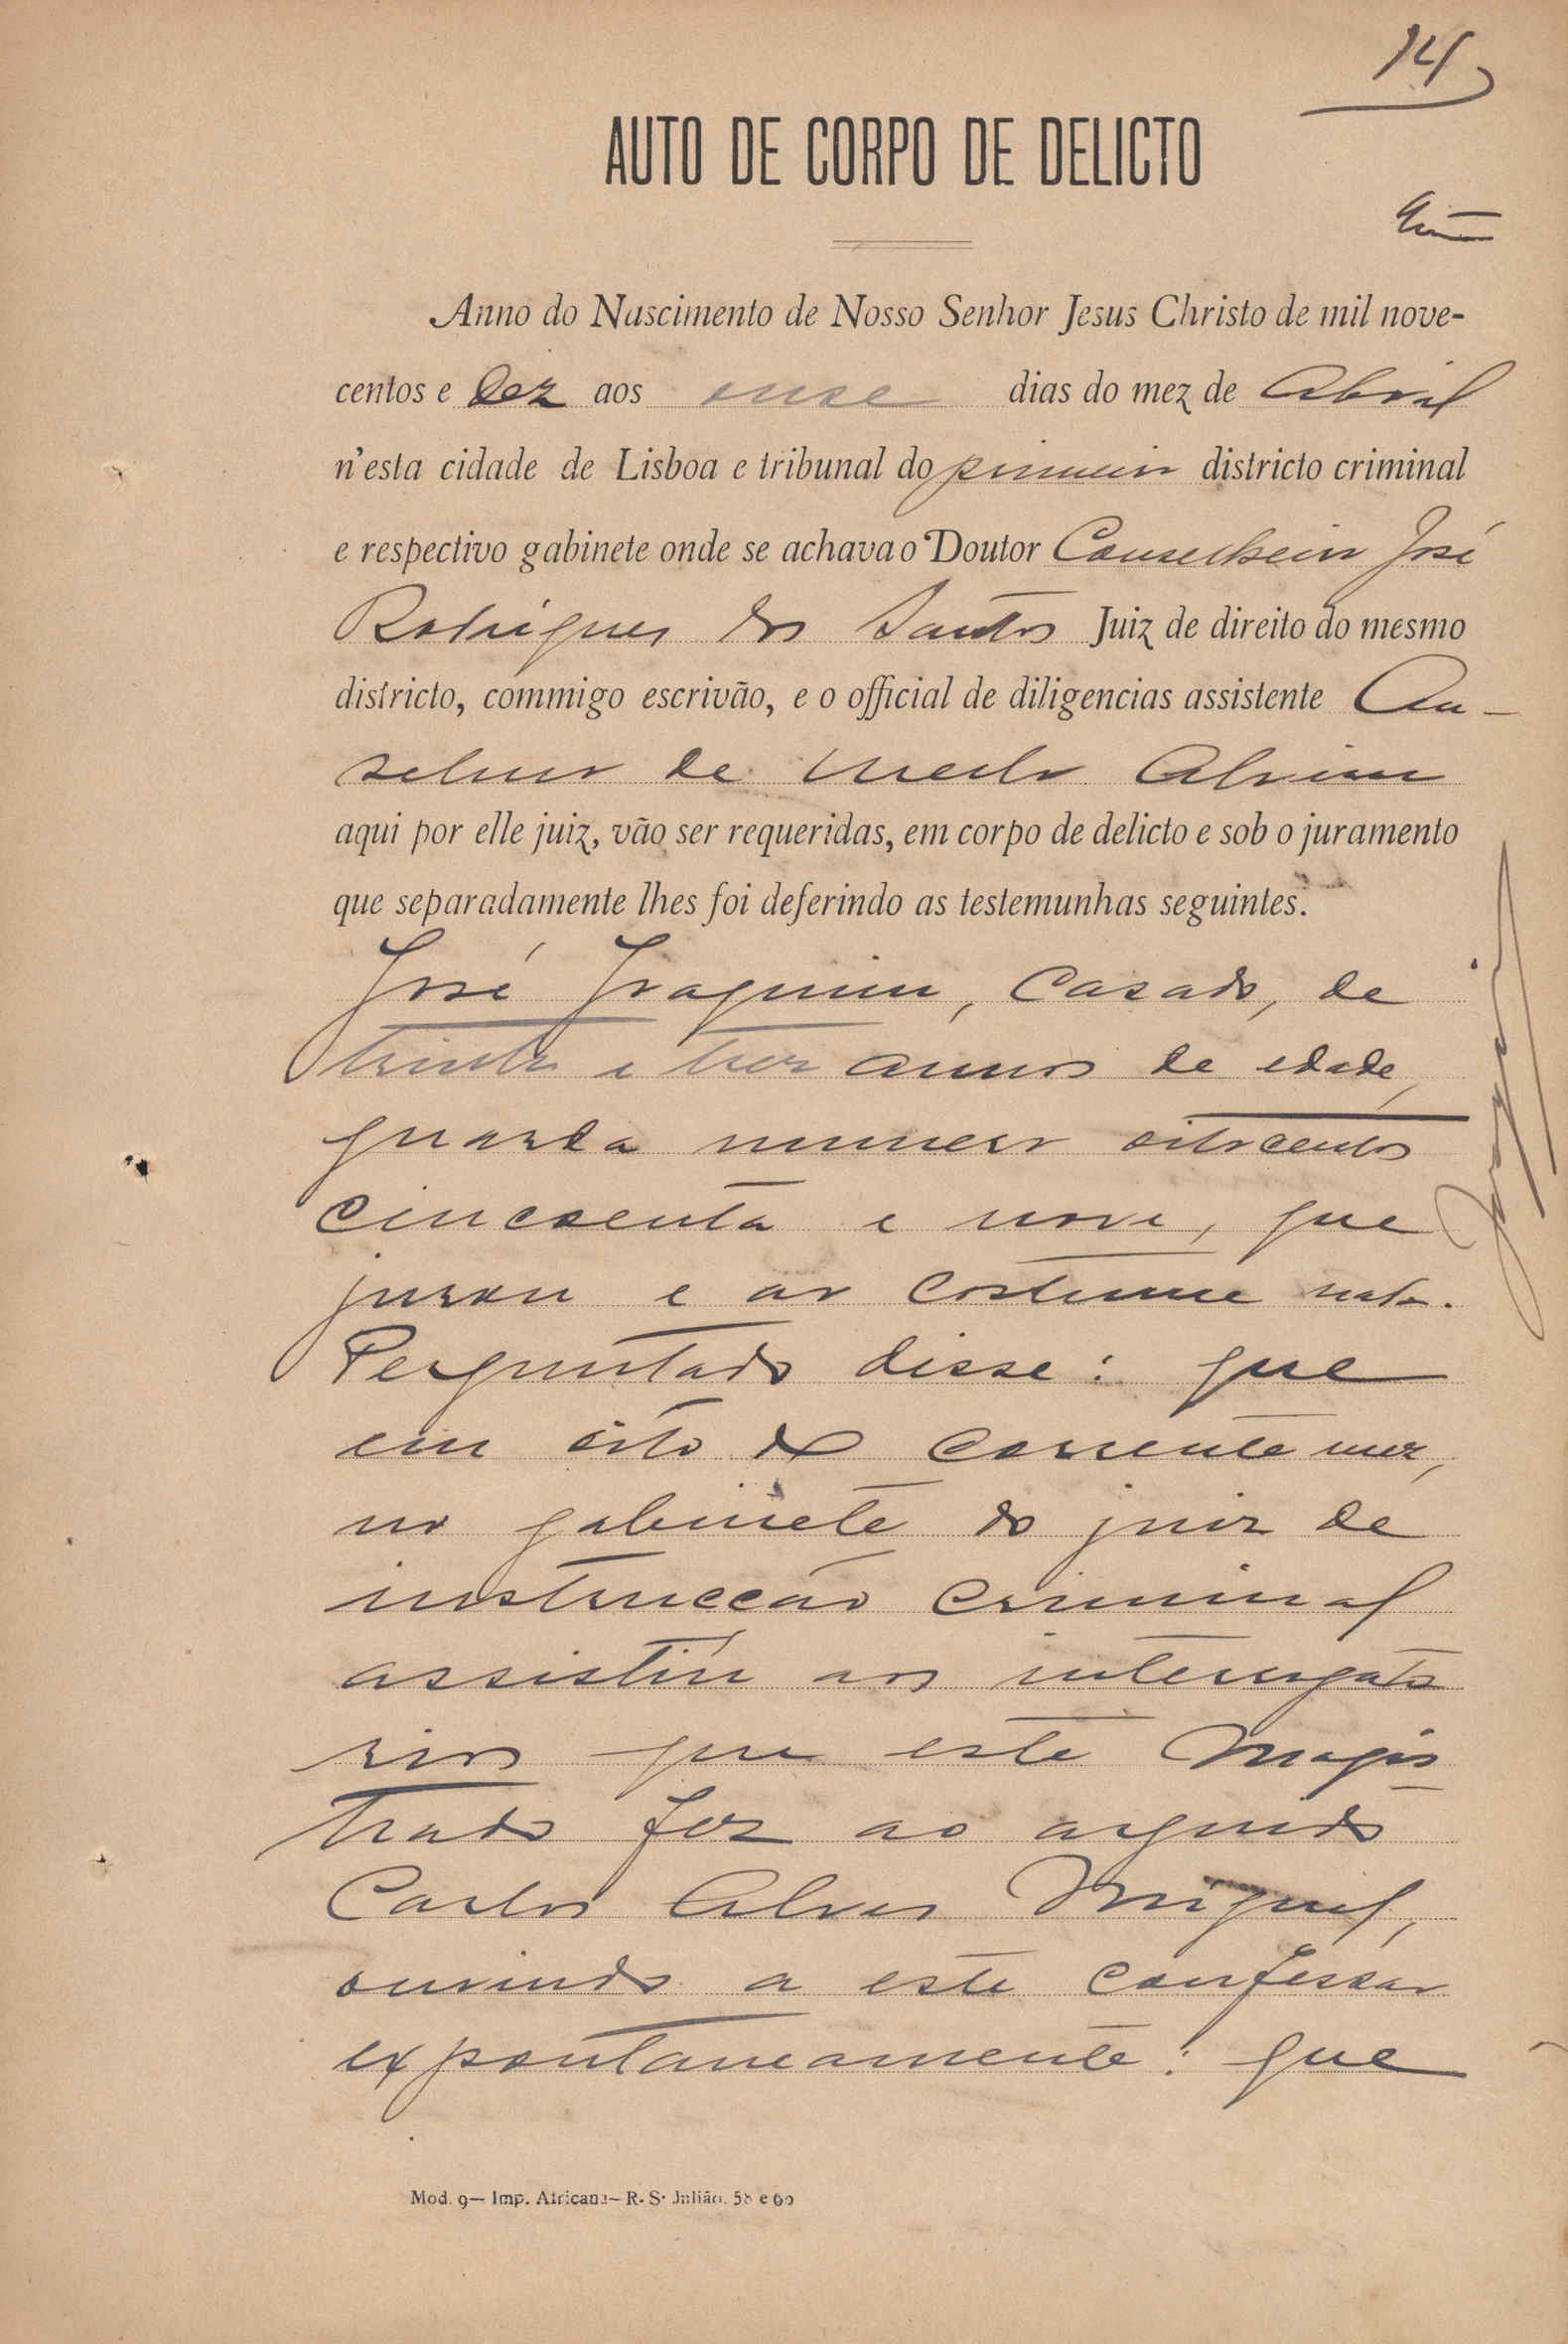 14
AUTO DE CORPO DE DELICTO
Anno do Nascimento de Nosso Senhor Jesus Christo de mil nove-
centos e Dez aos onse dias do mez de Abril
n'esta cidade de Lisboa e tribunal do primeiro districto criminal
e respectivo gabinete onde se achava o Doutor Conselheiro José
Rodrigues dos Santos Juiz de direito do mesmo
districto, commigo escrivão, e o official de diligencias assistente An-
selmo de Mello Alvim
aqui por elle juiz, vão ser requeridas, em corpo de delicto e sob o juramento
que separadamente lhes foi deferindo as testemunhas seguintes.
José Joaquim, casado, de
trinta e tres annos de edade,
guarda numero oitocentos
cincoenta e nove, que
jurou e ao costume nada.
Perguntado disse: que
em oito do corrente mez,
no gabinete do juiz de
instrucção criminal
assistiu aos interrogato
rios que este Magis
trado fez ao arguido
Carlos Alves Miguel,
ouvindo a este confessar
expontaneamente: que
Mod. 9— Imp. Africana—R. S. Julião, 58 e 60